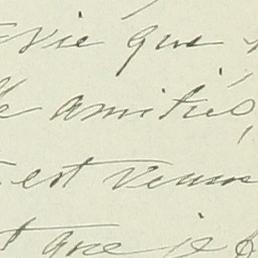 vie que
amitiés,
est venu
que je